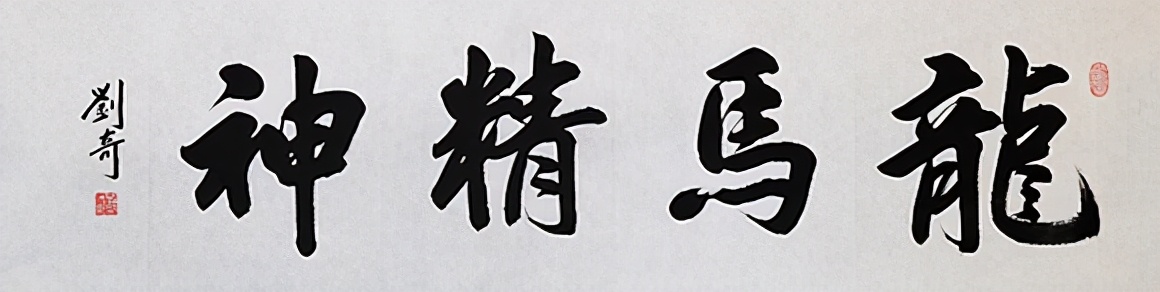 龍馬精神
劉奇